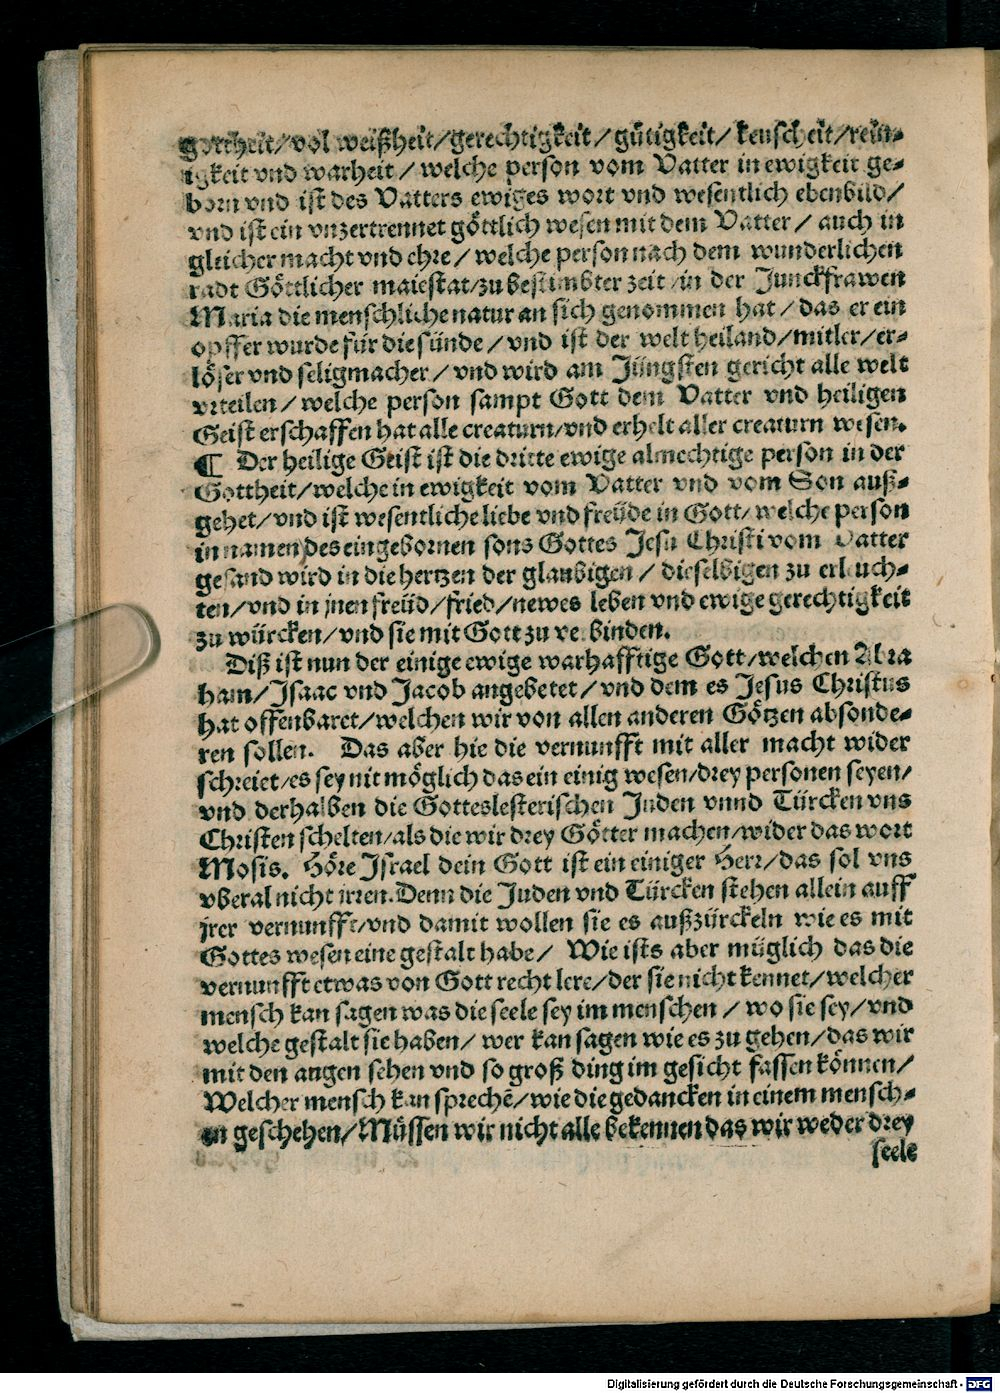 gottheit/vol weißheit/gerechtigkeit/gütigkeit/keuscheit/rein⸗
igkeit vnd warheit/welche person vom Vatter in ewigkeit ge⸗
born vnd ist des Vatters ewiges wort vnd wesentlich ebenbild/
vnd ist ein vnzertrennet göttlich wesen mit dem Vatter/auch in
gleicher macht vnd ehre/welche person nach dem wunderlichen
radt Göttlicher maiestat/zu bestimbter zeit/in der Junckfrawen
Maria die menschliche natur an sich genommen hat/das er ein
opffer wurde für die sünde/vnd ist der welt heiland/mitler/er⸗
löser vnd seligmacher/vnd wird am Jüngsten gericht alle welt
vrteilen/welche person sampt Gott dem Vatter vnd heiligen
Geist erschaffen hat alle creaturn/vnd erhelt aller creaturn wesen.
¶ Der heilige Geist ist die dritte ewige almechtige person in der
Gottheit/welche in ewigkeit vom Vatter vnd vom Son auß⸗
gehet/vnd ist wesentliche liebe vnd freüde in Gott/welche person
in namen des eingebornen sons Gottes Jesu Christi vom Vatter
gesand wird in die hertzen der glaubigen/dieselbigen zu erleuch⸗
ten/vnd in jnen freüd/fried/newes leben vnd ewige gerechtigkeit
zu würcken/vnd sie mit Gott zu verbinden.
Diß ist nun der einige ewige warhafftige Gott/welchen Abra
ham/Isaac vnd Jacob angebetet/vnd dem es Jesus Christus
hat offenbaret/welchen wir von allen anderen Götzen absonde⸗
ren sollen. Das aber hie die vernunfft mit aller macht wider
schreiet/es sey nit möglich das ein einig wesen/drey personen seyen/
vnd derhalben die Gotteslesterischen Juden vnnd Türcken vns
Christen schelten/als die wir drey Götter machen/wider das wort
Mosis. Höre Israel dein Gott ist ein einiger Herr/das sol vns
vberal nicht irren. Denn die Juden vnd Türcken stehen allein auff
jrer vernunfft/vnd damit wollen sie es außzürckeln wie es mit
Gottes wesen eine gestalt habe/Wie ists aber müglich das die
vernunfft etwas von Gott recht lere/der sie nicht kennet/welcher
mensch kan sagen was die seele sey im menschen/wo sie sey/vnd
welche gestalt sie haben/wer kan sagen wie es zu gehen/das wir
mit den augen sehen vnd so groß ding im gesicht fassen können/
Welcher mensch kan sprechē/wie die gedancken in einem mensch⸗
en geschehen/Müssen wir nicht alle bekennen das wir weder drey
seele
Digitalisierung gefördert durch die Deutsche Forschungsgemeinschaft - DFG